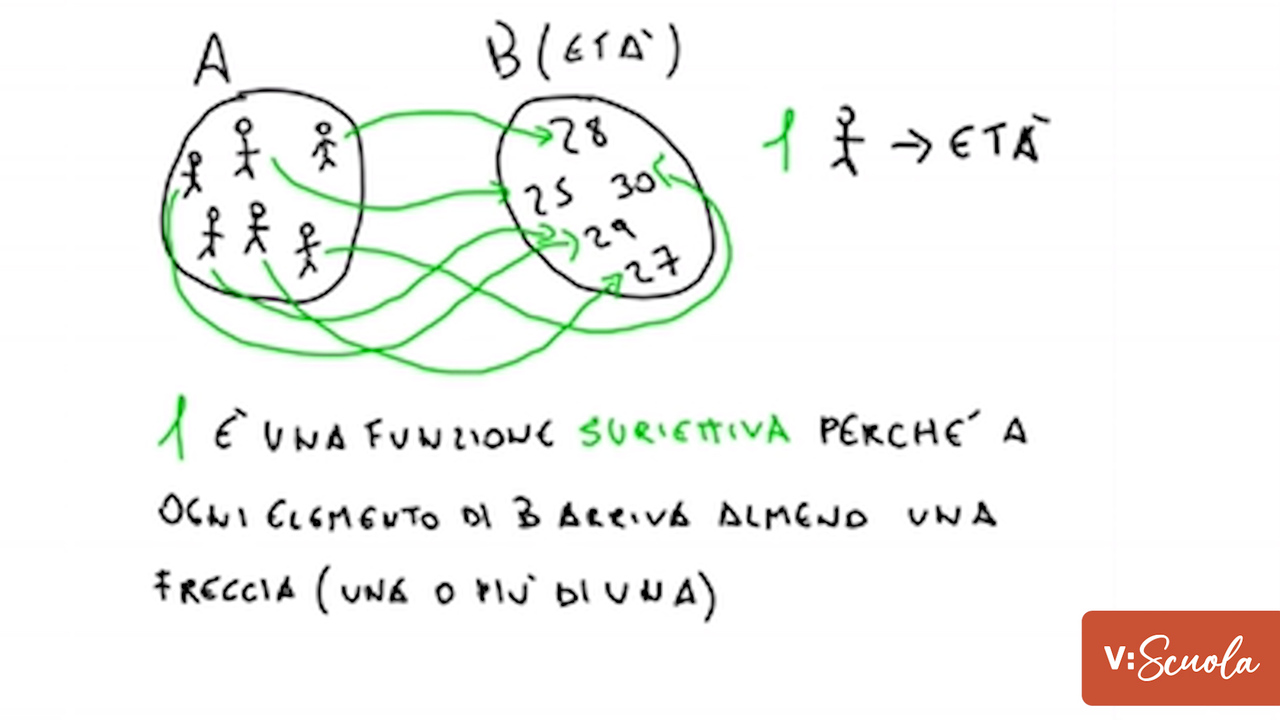 A
B (ETÀ)
28
25 30
29
27
f → ETÀ
f È UNA FUNZIONE SURIETTIVA PERCHÉ A
OGNI ELEMENTO DI B ARRIVA ALMENO UNA
FRECCIA (UNA O PIÙ DI UNA)
V:Scuola